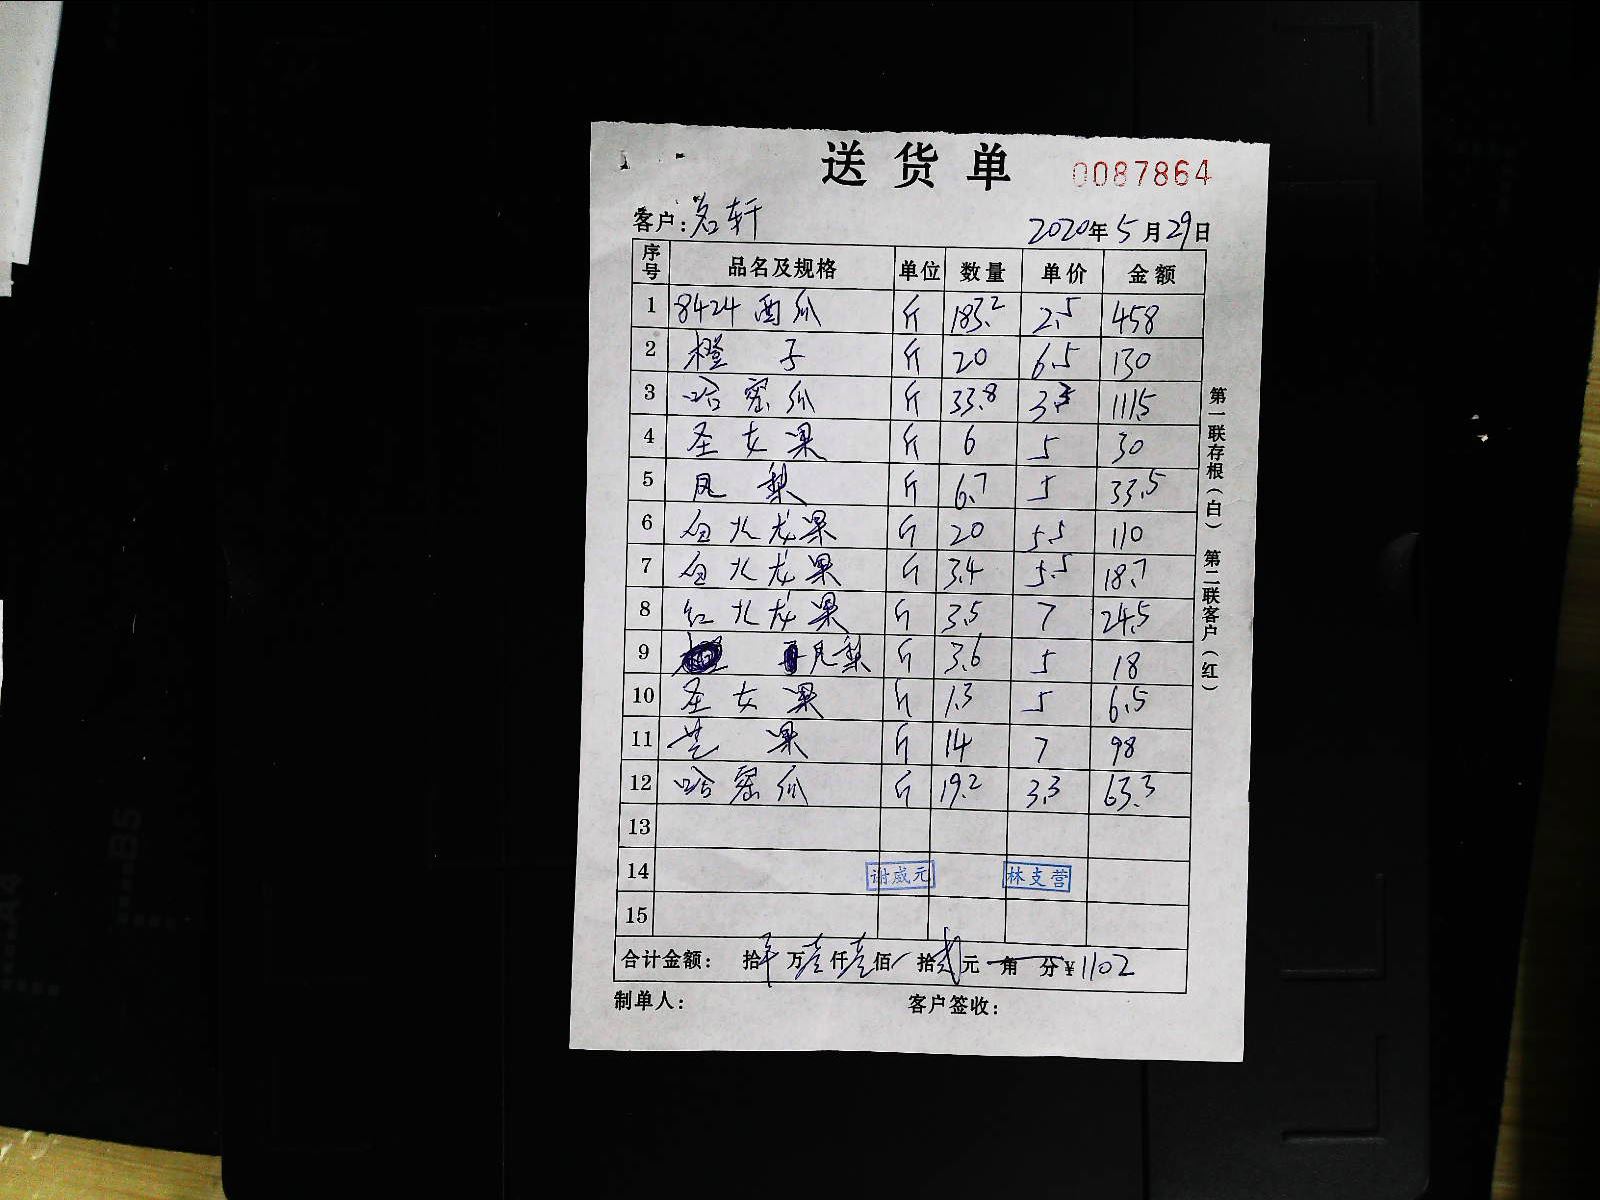 送货单 0087864
客户：茗轩 2020年5月29日
序号 品名及规格 单位 数量 单价 金额
1 8424西瓜 斤 183.2 2.5 458
2 橙子 斤 20 6.5 130
3 哈密瓜 斤 33.8 3.3 111.5
4 圣女果 斤 6 5 30
5 凤梨 斤 6.7 5 33.5
6 白火龙果 斤 20 5.5 110
7 白火龙果 斤 3.4 5.5 18.7
8 红火龙果 斤 3.5 7 24.5
9 凤梨 斤 3.6 5 18
10 圣女果 斤 1.3 5 6.5
11 芒果 斤 14 7 98
12 哈密瓜 斤 19.2 3.3 63.3
13
14 谢威元 林支营
15
合计金额： 拾 万壹仟壹佰/拾贰元 角 分¥1102
制单人： 客户签收：
第一联存根（白） 第二联客户（红）
B5
A4